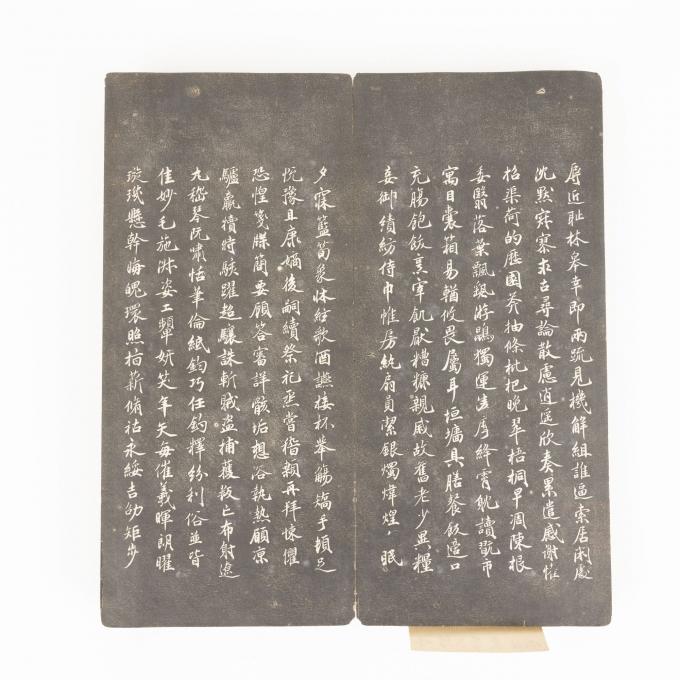 辱近耻林皋幸即兩疏見機解組誰逼索居閑處
沈默寂寥求古尋論散慮逍遥欣奏累遣慼謝懽
招渠荷的歷園莽抽條枇杷晚翠梧桐早凋陳根
委翳落葉飄颻游鵾獨運凌摩絳霄耽讀翫市
寓目囊箱易輶攸畏屬耳垣墻具膳餐飯適口
充腸飽飫烹宰飢猒糟糠親戚故舊老少異糧
妾御績紡侍巾帷房紈扇員潔銀燭煒煌眠
夕寐籃筍象床絃歌酒讌接杯舉觴矯手頓足
悅豫且康嫡後嗣續祭祀烝嘗稽顙再拜悚懼
恐惶牋牒簡要顧答審詳骸垢想浴執熱願凉
驢騾犢特駭躍超驤誅斬賊盜捕獲叛亡布射遼
丸嵇琴阮嘯恬筆倫紙鈞巧任釣釋紛利俗並皆
佳妙毛施淑姿工顰妍笑年矢每催羲暉朗曜
璇璣懸斡晦魄環照指薪脩祜永綏吉劭矩步